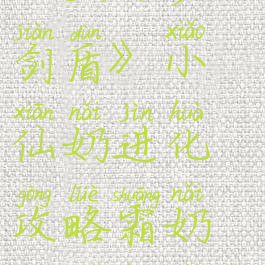 jiàn dùn xiǎo
剑盾》小
xiān nǎi jìn huà
仙奶进化
gōng lüè shuāng nǎi
攻略霜奶